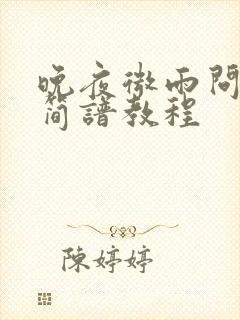 晚夜微雨問
簡譜教程
陳婷婷